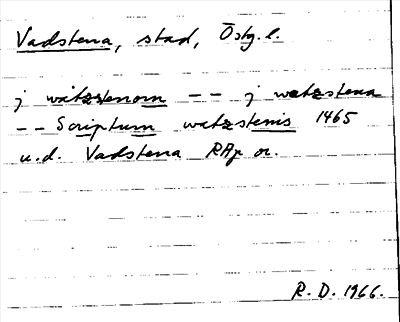 Vadstena, stad, Östg.l.
j watzstenom -- j watzstena
-- Scriptum watzstenis 1465
u.d. Vadstena RAp or.
R. D. 1966.